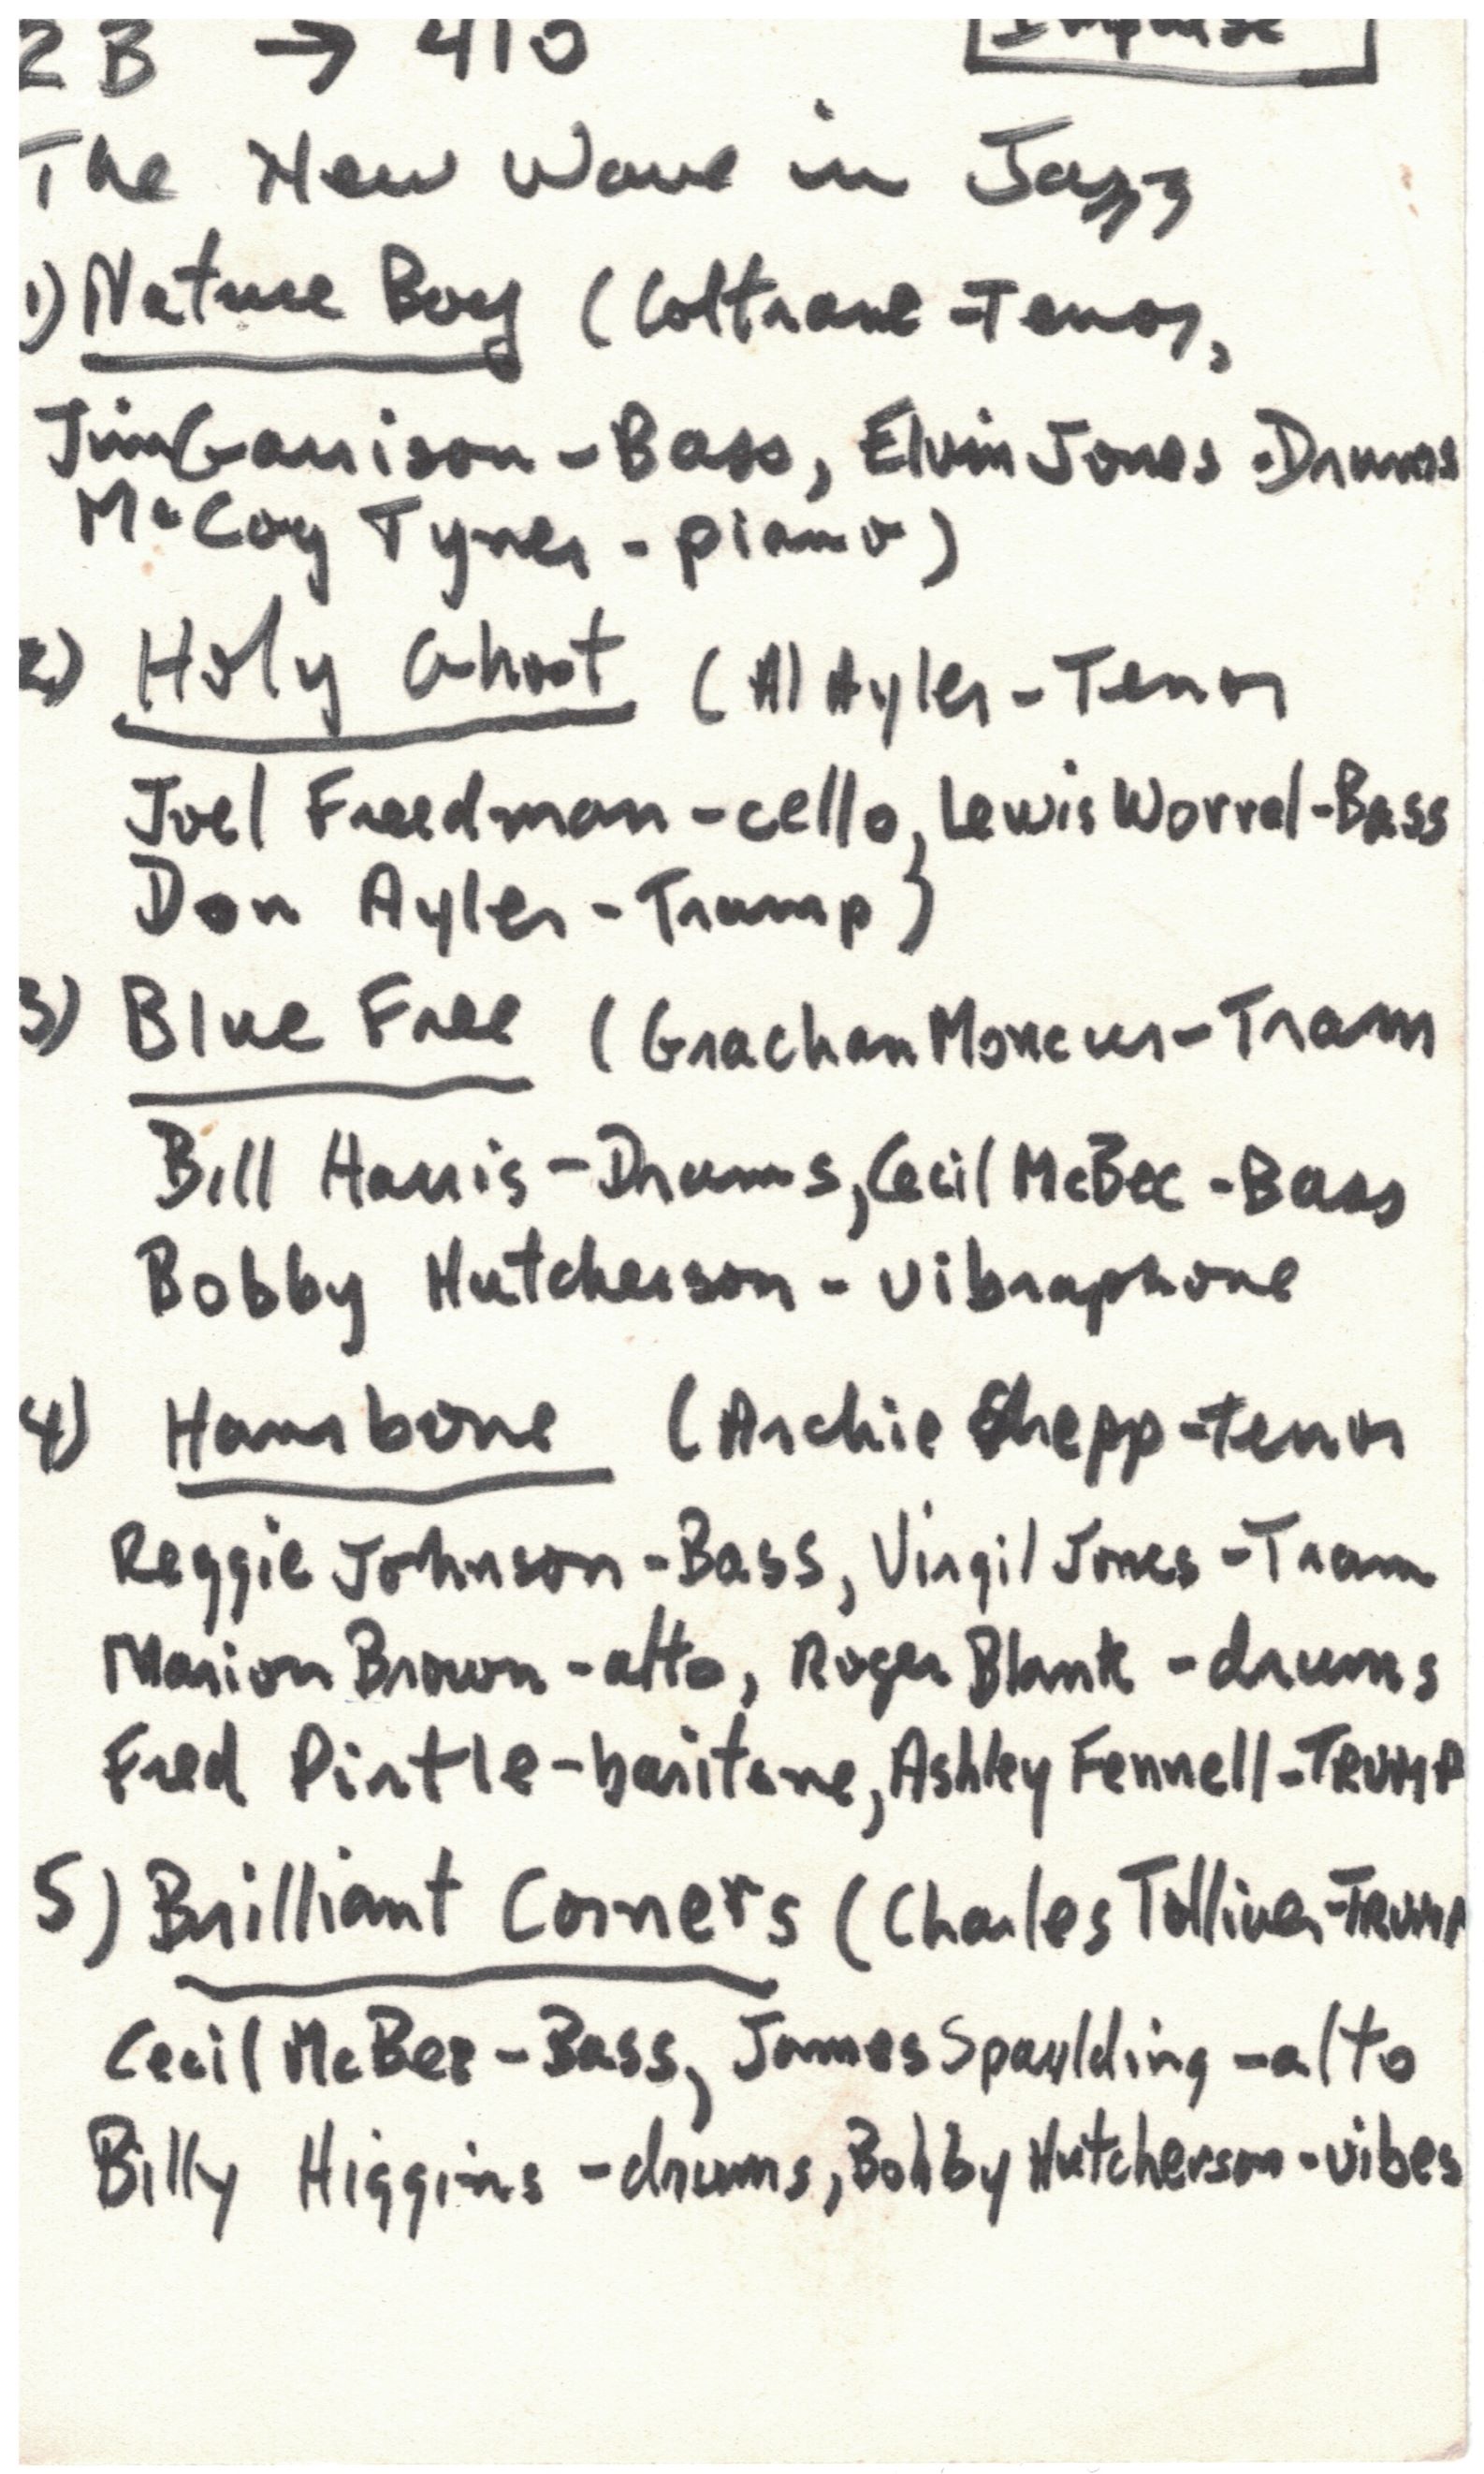 2B → 410
Impulse
The New Wave in Jazz
1) Nature Boy (Coltrane - Tenor,
Jim Garrison - Bass, Elvin Jones - Drums
McCoy Tyner - piano)
2) Holy Ghost (Al Ayler - Tenor
Joel Freedman - cello, Lewis Worrel - Bass
Don Ayler - Trump)
3) Blue Free (Grachan Moncur - Tram
Bill Harris - Drums, Cecil McBee - Bass
Bobby Hutcherson - vibraphone
4) Hambone (Archie Shepp - tenor
Reggie Johnson - Bass, Virgil Jones - Tram
Marion Brown - alto, Roger Blank - drums
Fred Pirtle - baritone, Ashley Fennell - TRUMP
5) Brilliant Corners (Charles Tolliver - TRUMP
Cecil McBee - Bass, James Spaulding - alto
Billy Higgins - drums, Bobby Hutcherson - vibes